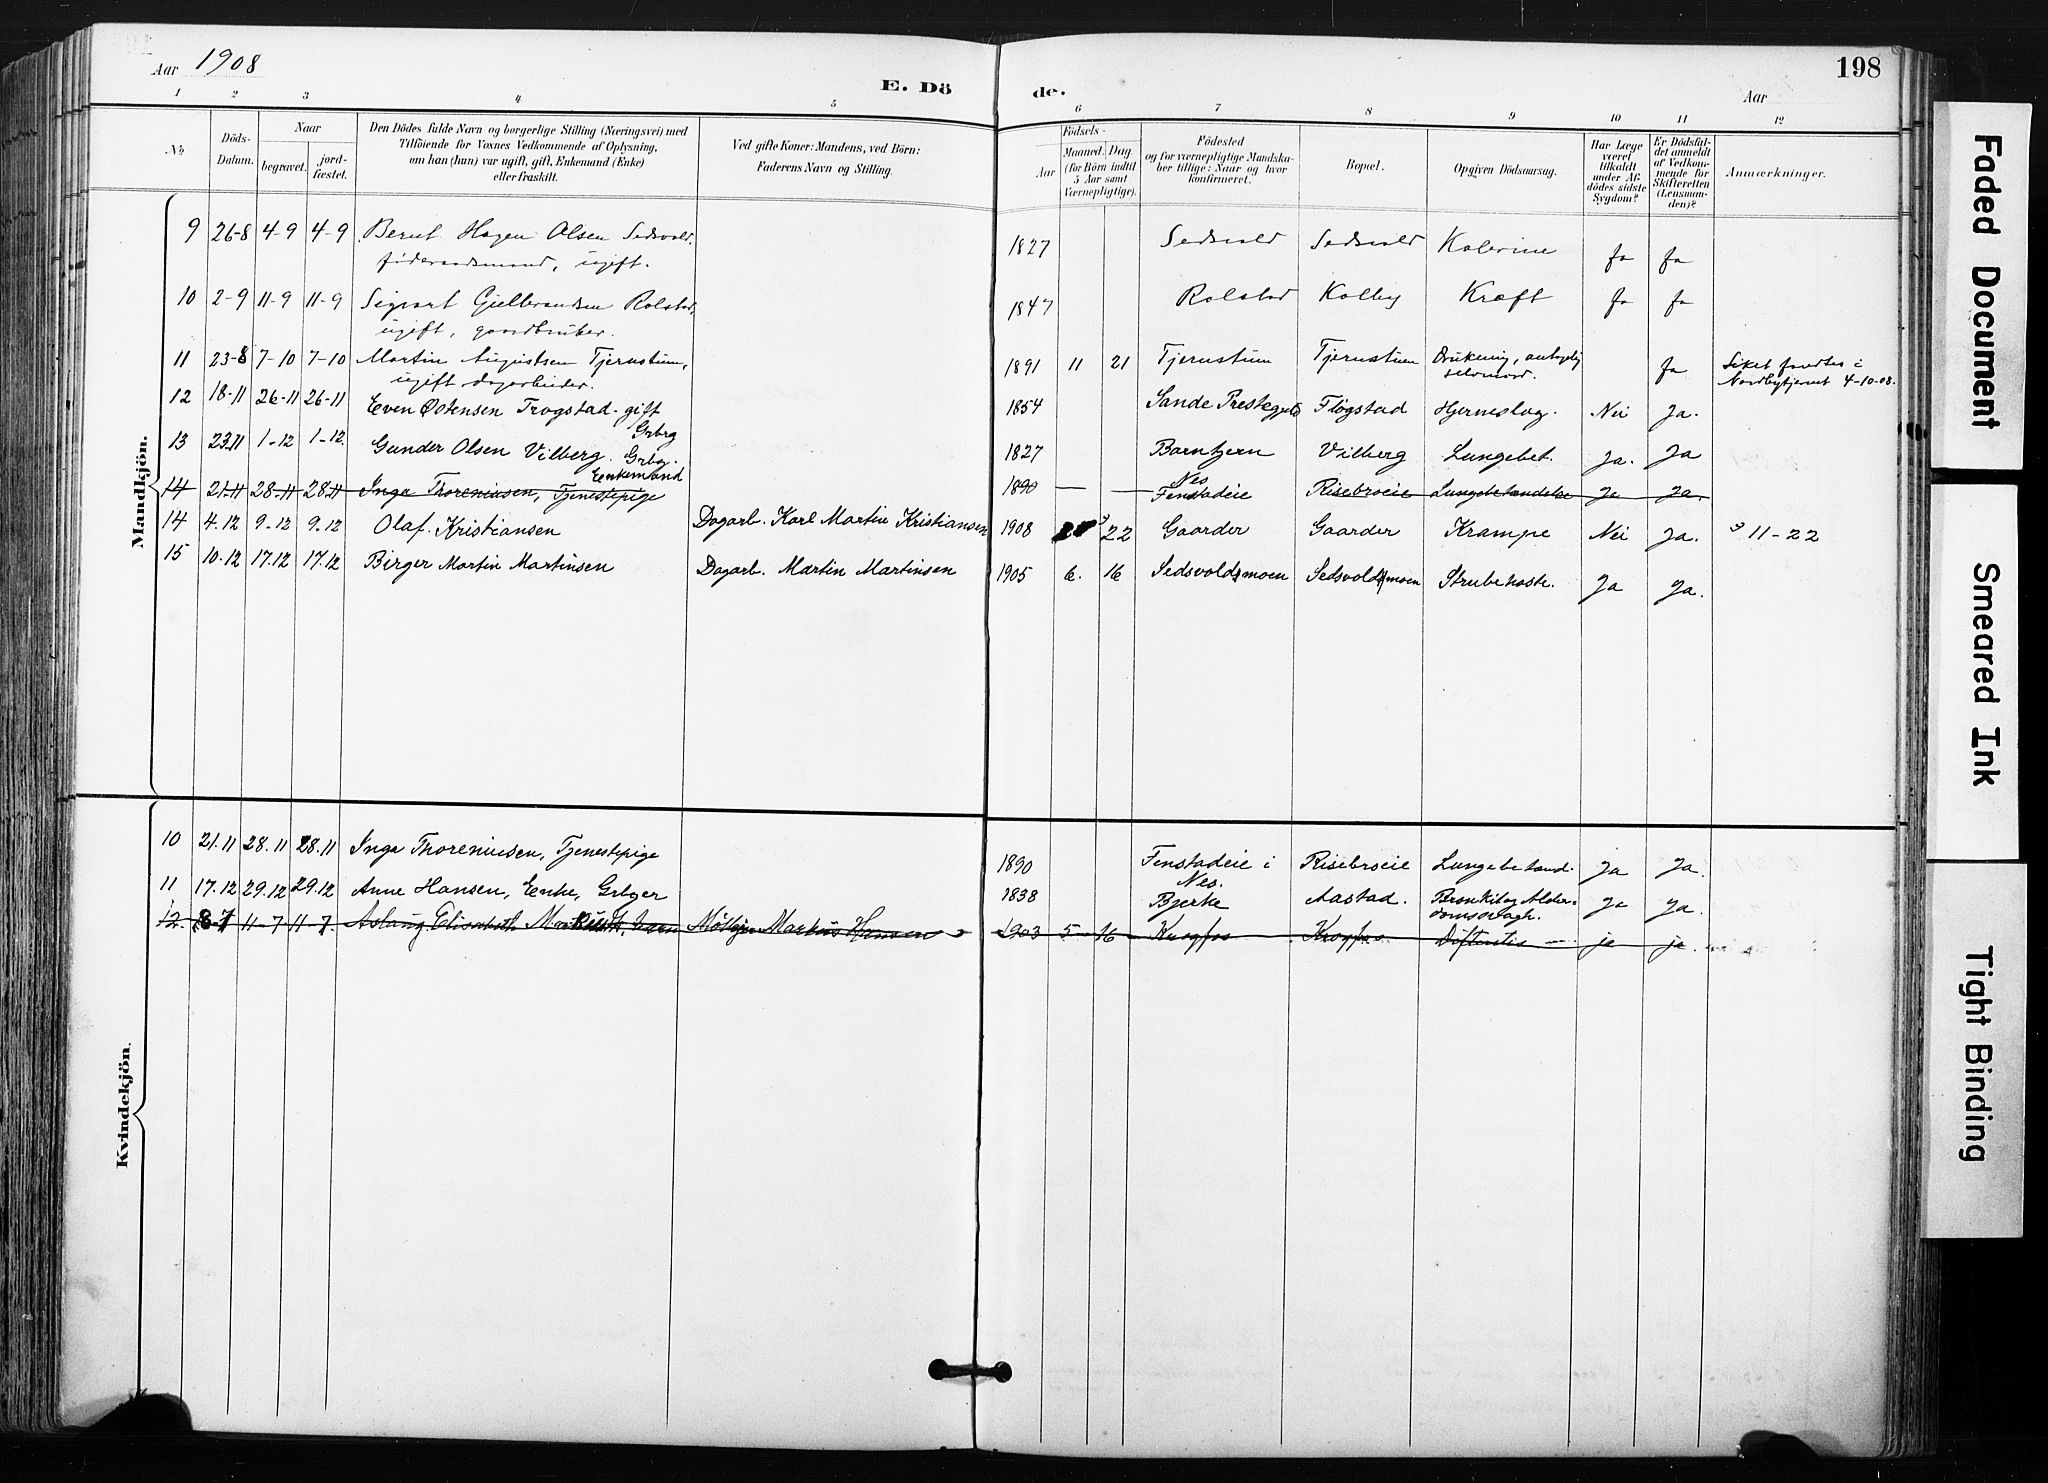 Aar 1908
E. Döde.
198
Aar
1 2 3 4 5 6 7 8 9 10 11 12
No
Döds-Datum.
Naar
begravet.
jord-fæstet.
Den Dödes fulde Navn og borgerlige Stilling (Næringsvei) med
Tilföiende for Voxnes Vedkommende af Oplysning,
om han (hun) var ugift, gift, Enkemand (Enke)
eller fraskilt.
Ved gifte Koner: Mandens, ved Börn:
Faderens Navn og Stilling.
Födsels-
Aar
Maaned. Dag
(for Börn indtil
5 Aar samt
Værnepligtige).
Födested
og for værnepligtige Mandska-
ber tillige: Naar og hvor
konfirmeret.
Bopæl.
Opgiven Dödsaarsag.
Har Læge
været
tilkaldt
under Af-
dödes sidste
Sygdom?
Er Dödsfal-
det anmeldt
af Vedkom-
mende for
Skifteretten
(Lensman-
den)?
Anmærkninger.
Mandkjön.
9 26-8 4-9 4-9 Bernt Hagen Olsen Sedsvold, 1827 Sedsvold Sedsvold Kolerine ja ja
föderaadsmand, ugift.
10 2-9 11-9 11-9 Sigvart Gulbrandsen Rolstad, 1847 Rolstad Kolby Kræft ja ja
ugift, gaardbruker.
11 23-8 7-10 7-10 Martin Augustsen Tjernstum, 1891 11 21 Tjernstum Tjernstum Drukning, antagelig ja Liket fandtes i
ugift dagarbeider. selvmord. Nordbytjernet 4-10-08.
12 18-11 26-11 26-11 Even Østensen Trogstad. gift 1854 Sande Prestegjeld Fløgstad Hjerneslag. Nei Ja.
Grbrg
13 23.11 1-12 1-12. Gunder Olsen Vilberg. Grbg. 1827 Barntjern Vilberg Lungebet. Ja. Ja
Enkemand
14 21-11 28-11 28.11 Inga Thoreniusen, Tjenestepige 1890 — — Nes Fenstadeie Risebroeie Lungebetændelse Ja Ja.
14 4.12 9.12 9.12 Olaf Kristiansen Dagarb. Karl Martin Kristiansen 1908 22 Gaarder Gaarder Krampe Nei Ja. 11-22
15 10.12 17.12 17.12 Birger Martin Martinsen Dagarb. Martin Martinsen 1905 6. 16 Sedsvoldsmoen Sedsvoldsmoen Strubehoste. Ja Ja.
Kvindekjön.
10 21.11 28.11 28.11 Inga Thoreniusen, Tjenestepige 1890 Fenstadeie i Risebroeie Lungebetænd. Ja Ja.
Nes.
11 17.12 29.12 29.12 Anne Hansen, Enke, Grbger 1838 Bjerke Aastad. Bronkit og Alder- Ja Ja.
domssvagh.
12. 8-7 11-7 11-7 Aslaug Elisabeth Møllebjer Markus Hansen 1903 5 16 Krogfos Krogfos Difteritis ja ja.
Faded Document
Smeared Ink
Tight Binding